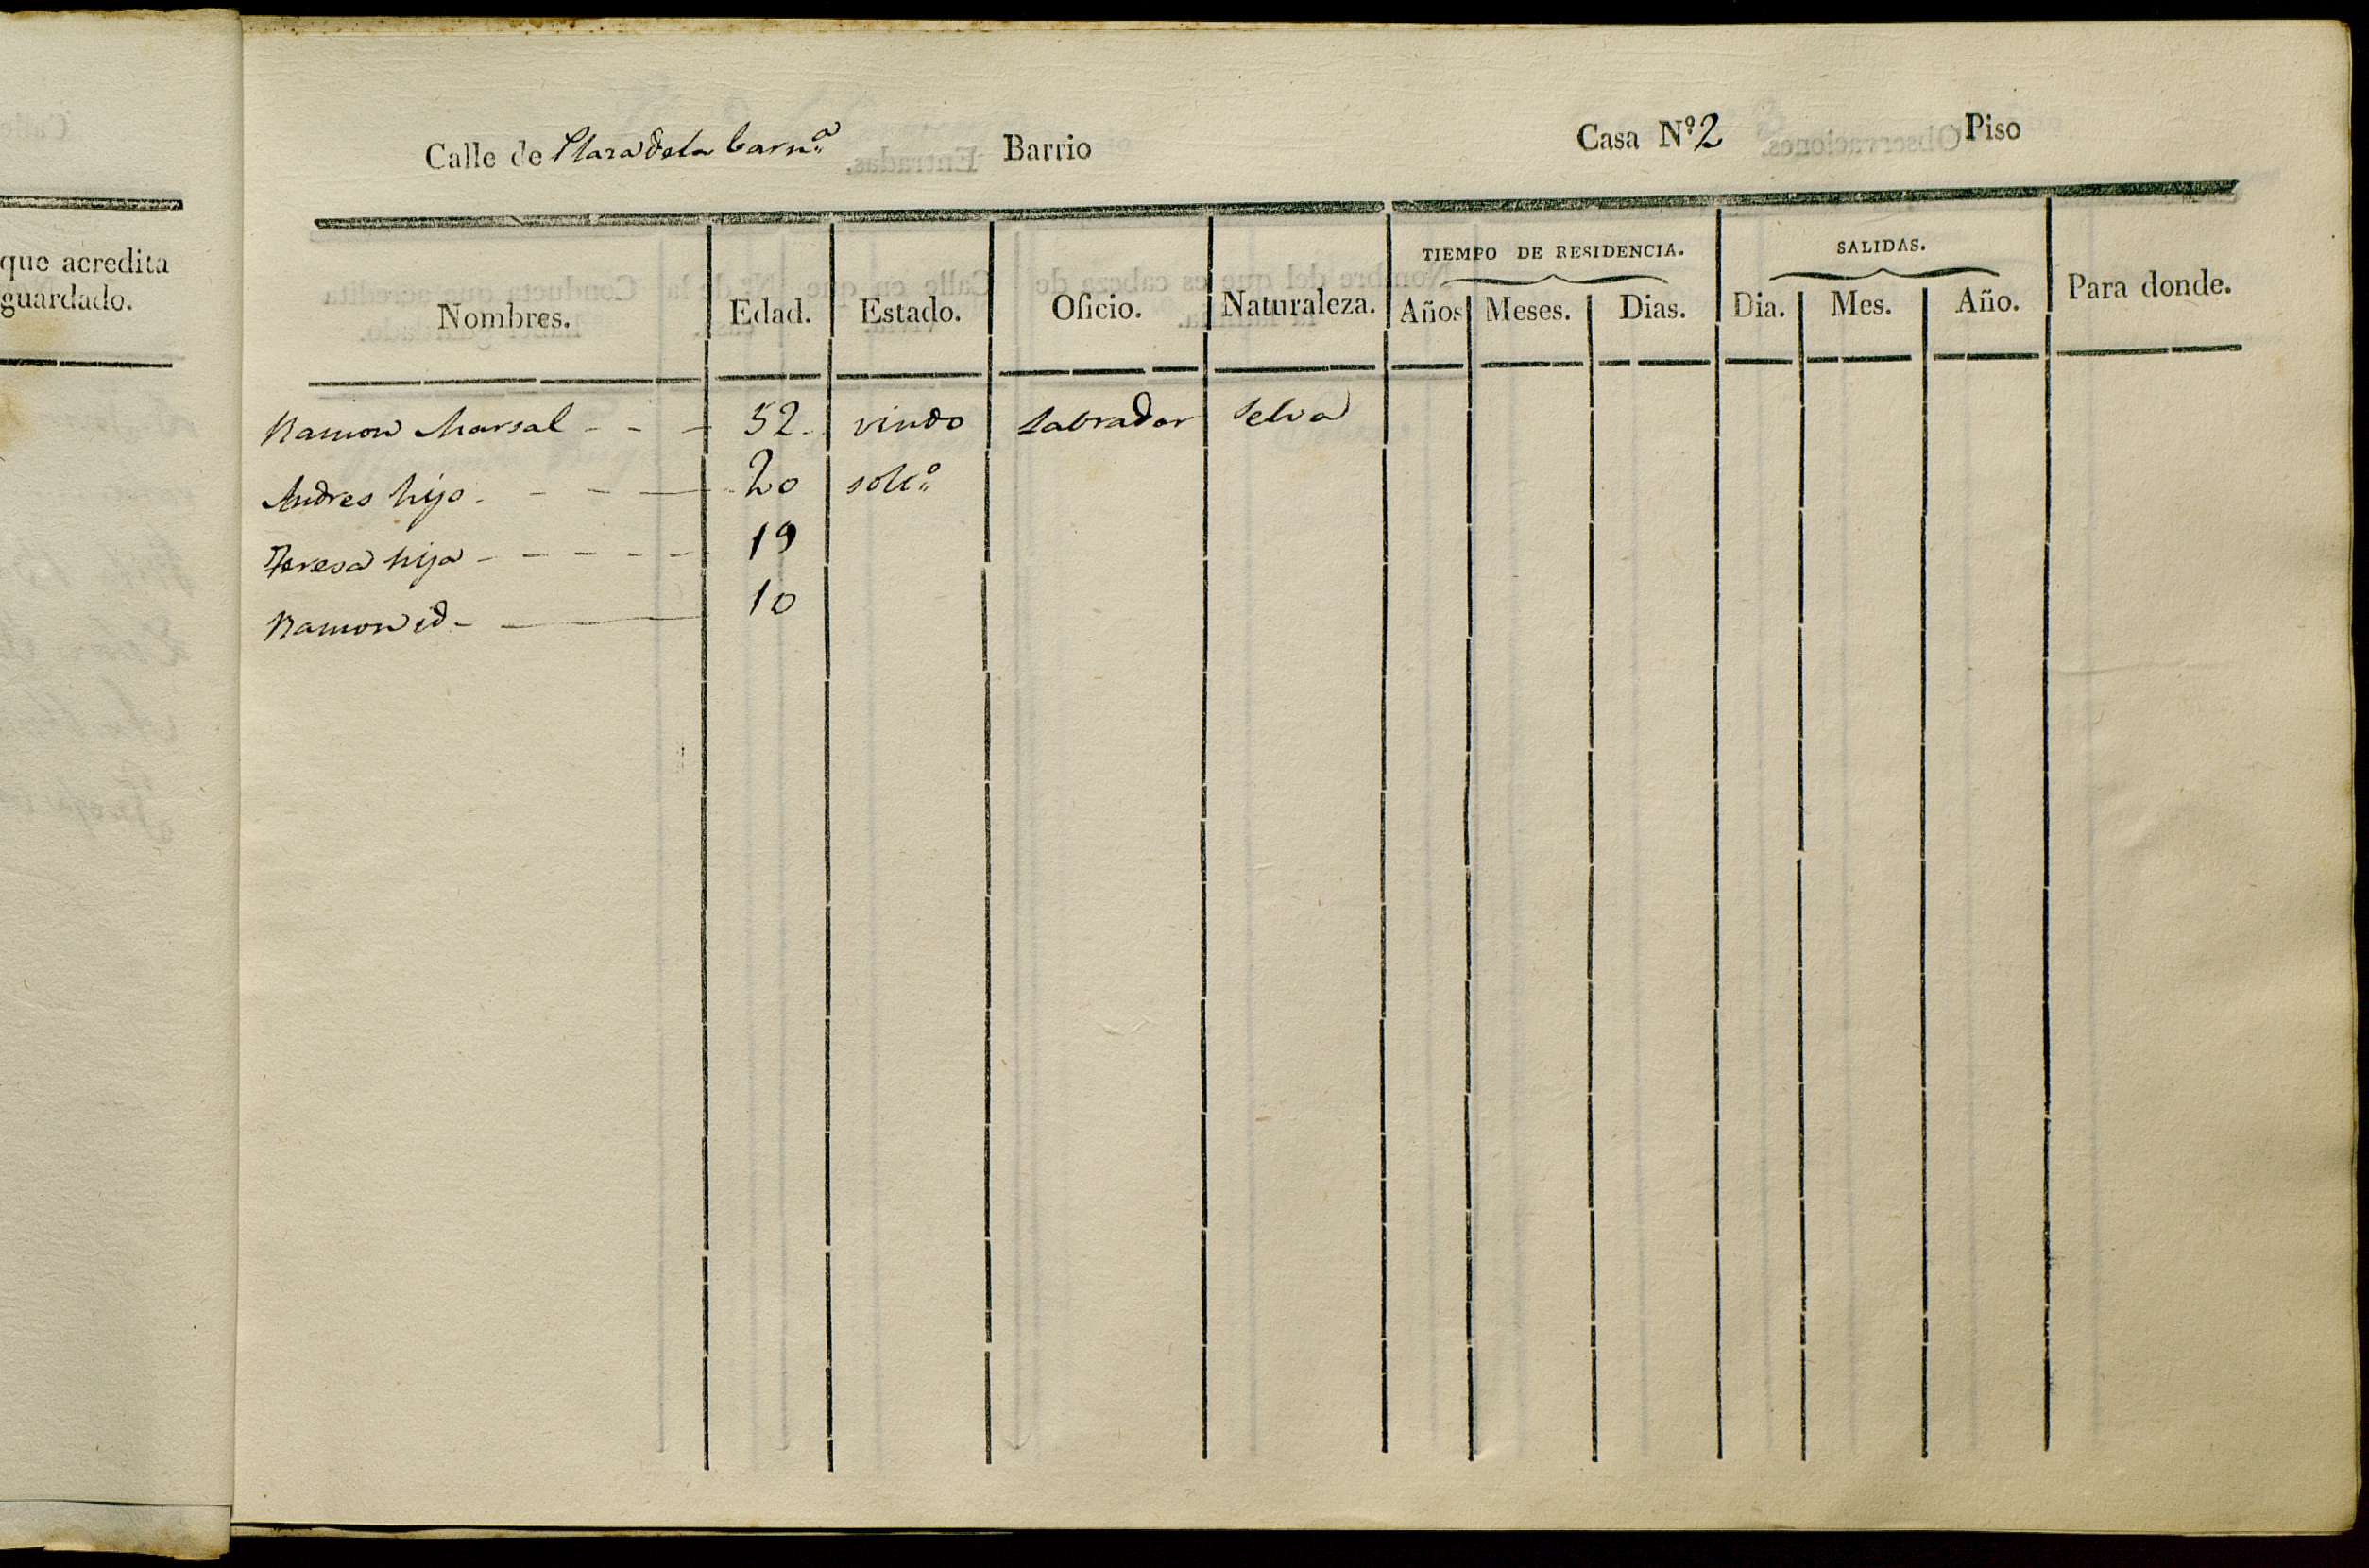 que acredita
guardado.
Calle de Plaza de la Carn.ª Barrio Casa Nº 2 Piso
Nombres. Edad. Estado. Oficio. Naturaleza. TIEMPO DE RESIDENCIA. Años Meses. Dias. SALIDAS. Dia. Mes. Año. Para donde.
Ramon Marsal - - - 52. viudo Labrador Selva
Andres hijo - - - - 20 solt.º
Teresa hija - - - - - 19
Ramon id - - 10